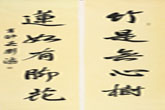 竹是無心樹
蓮如有脚花